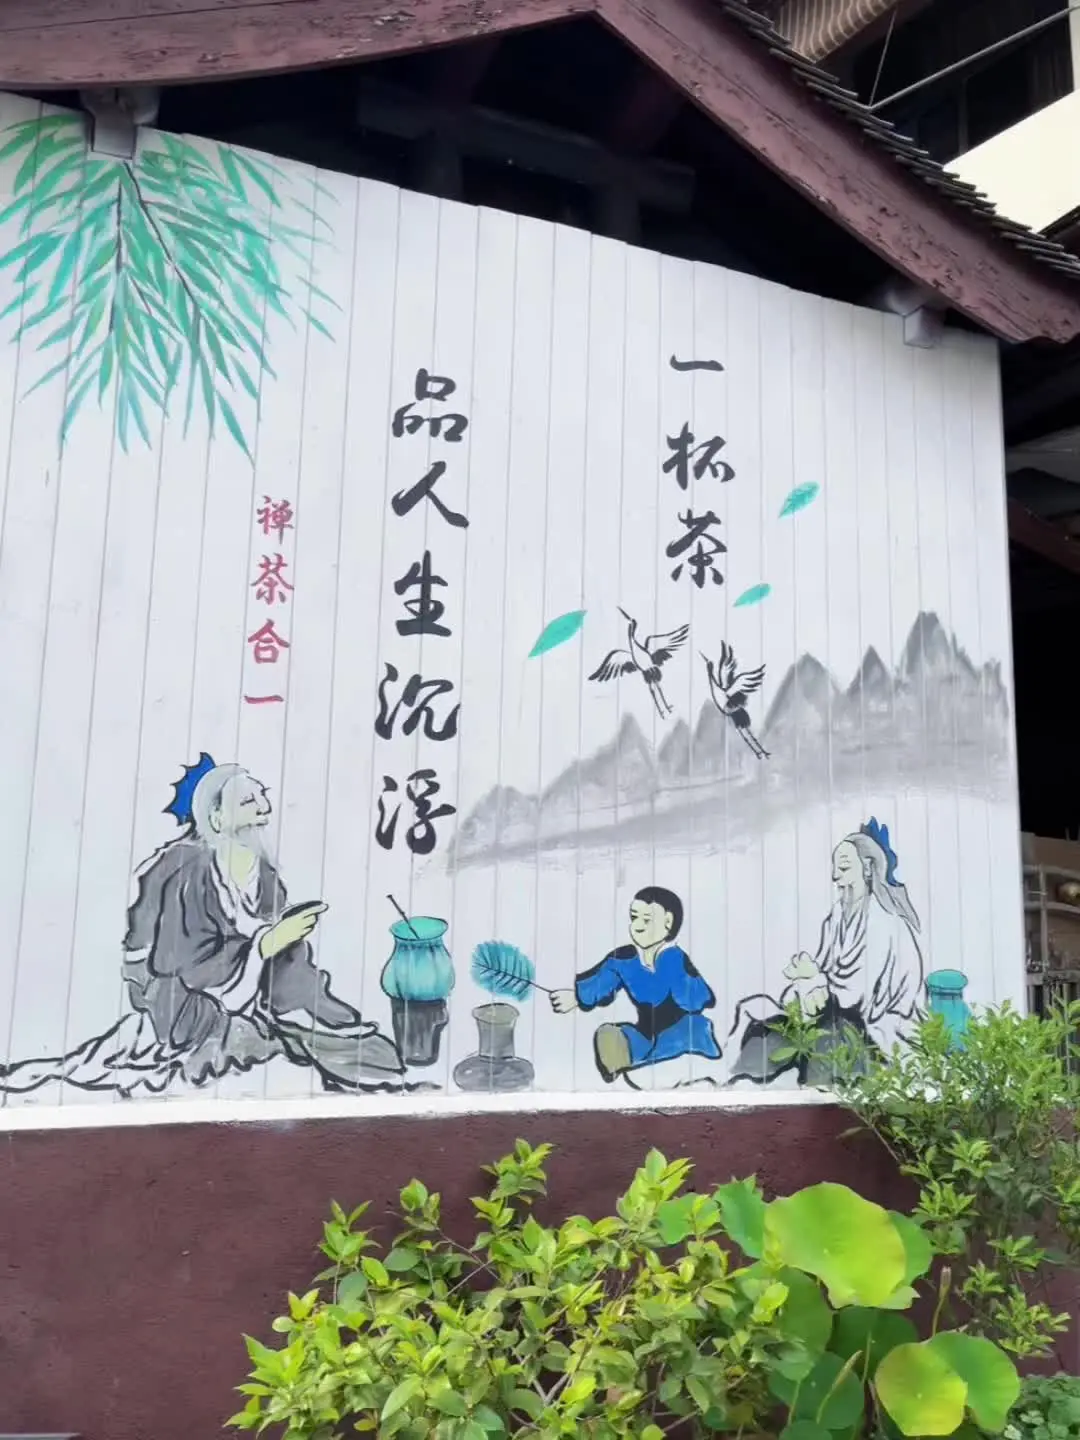 一杯茶
品人生沉浮
禅茶合一